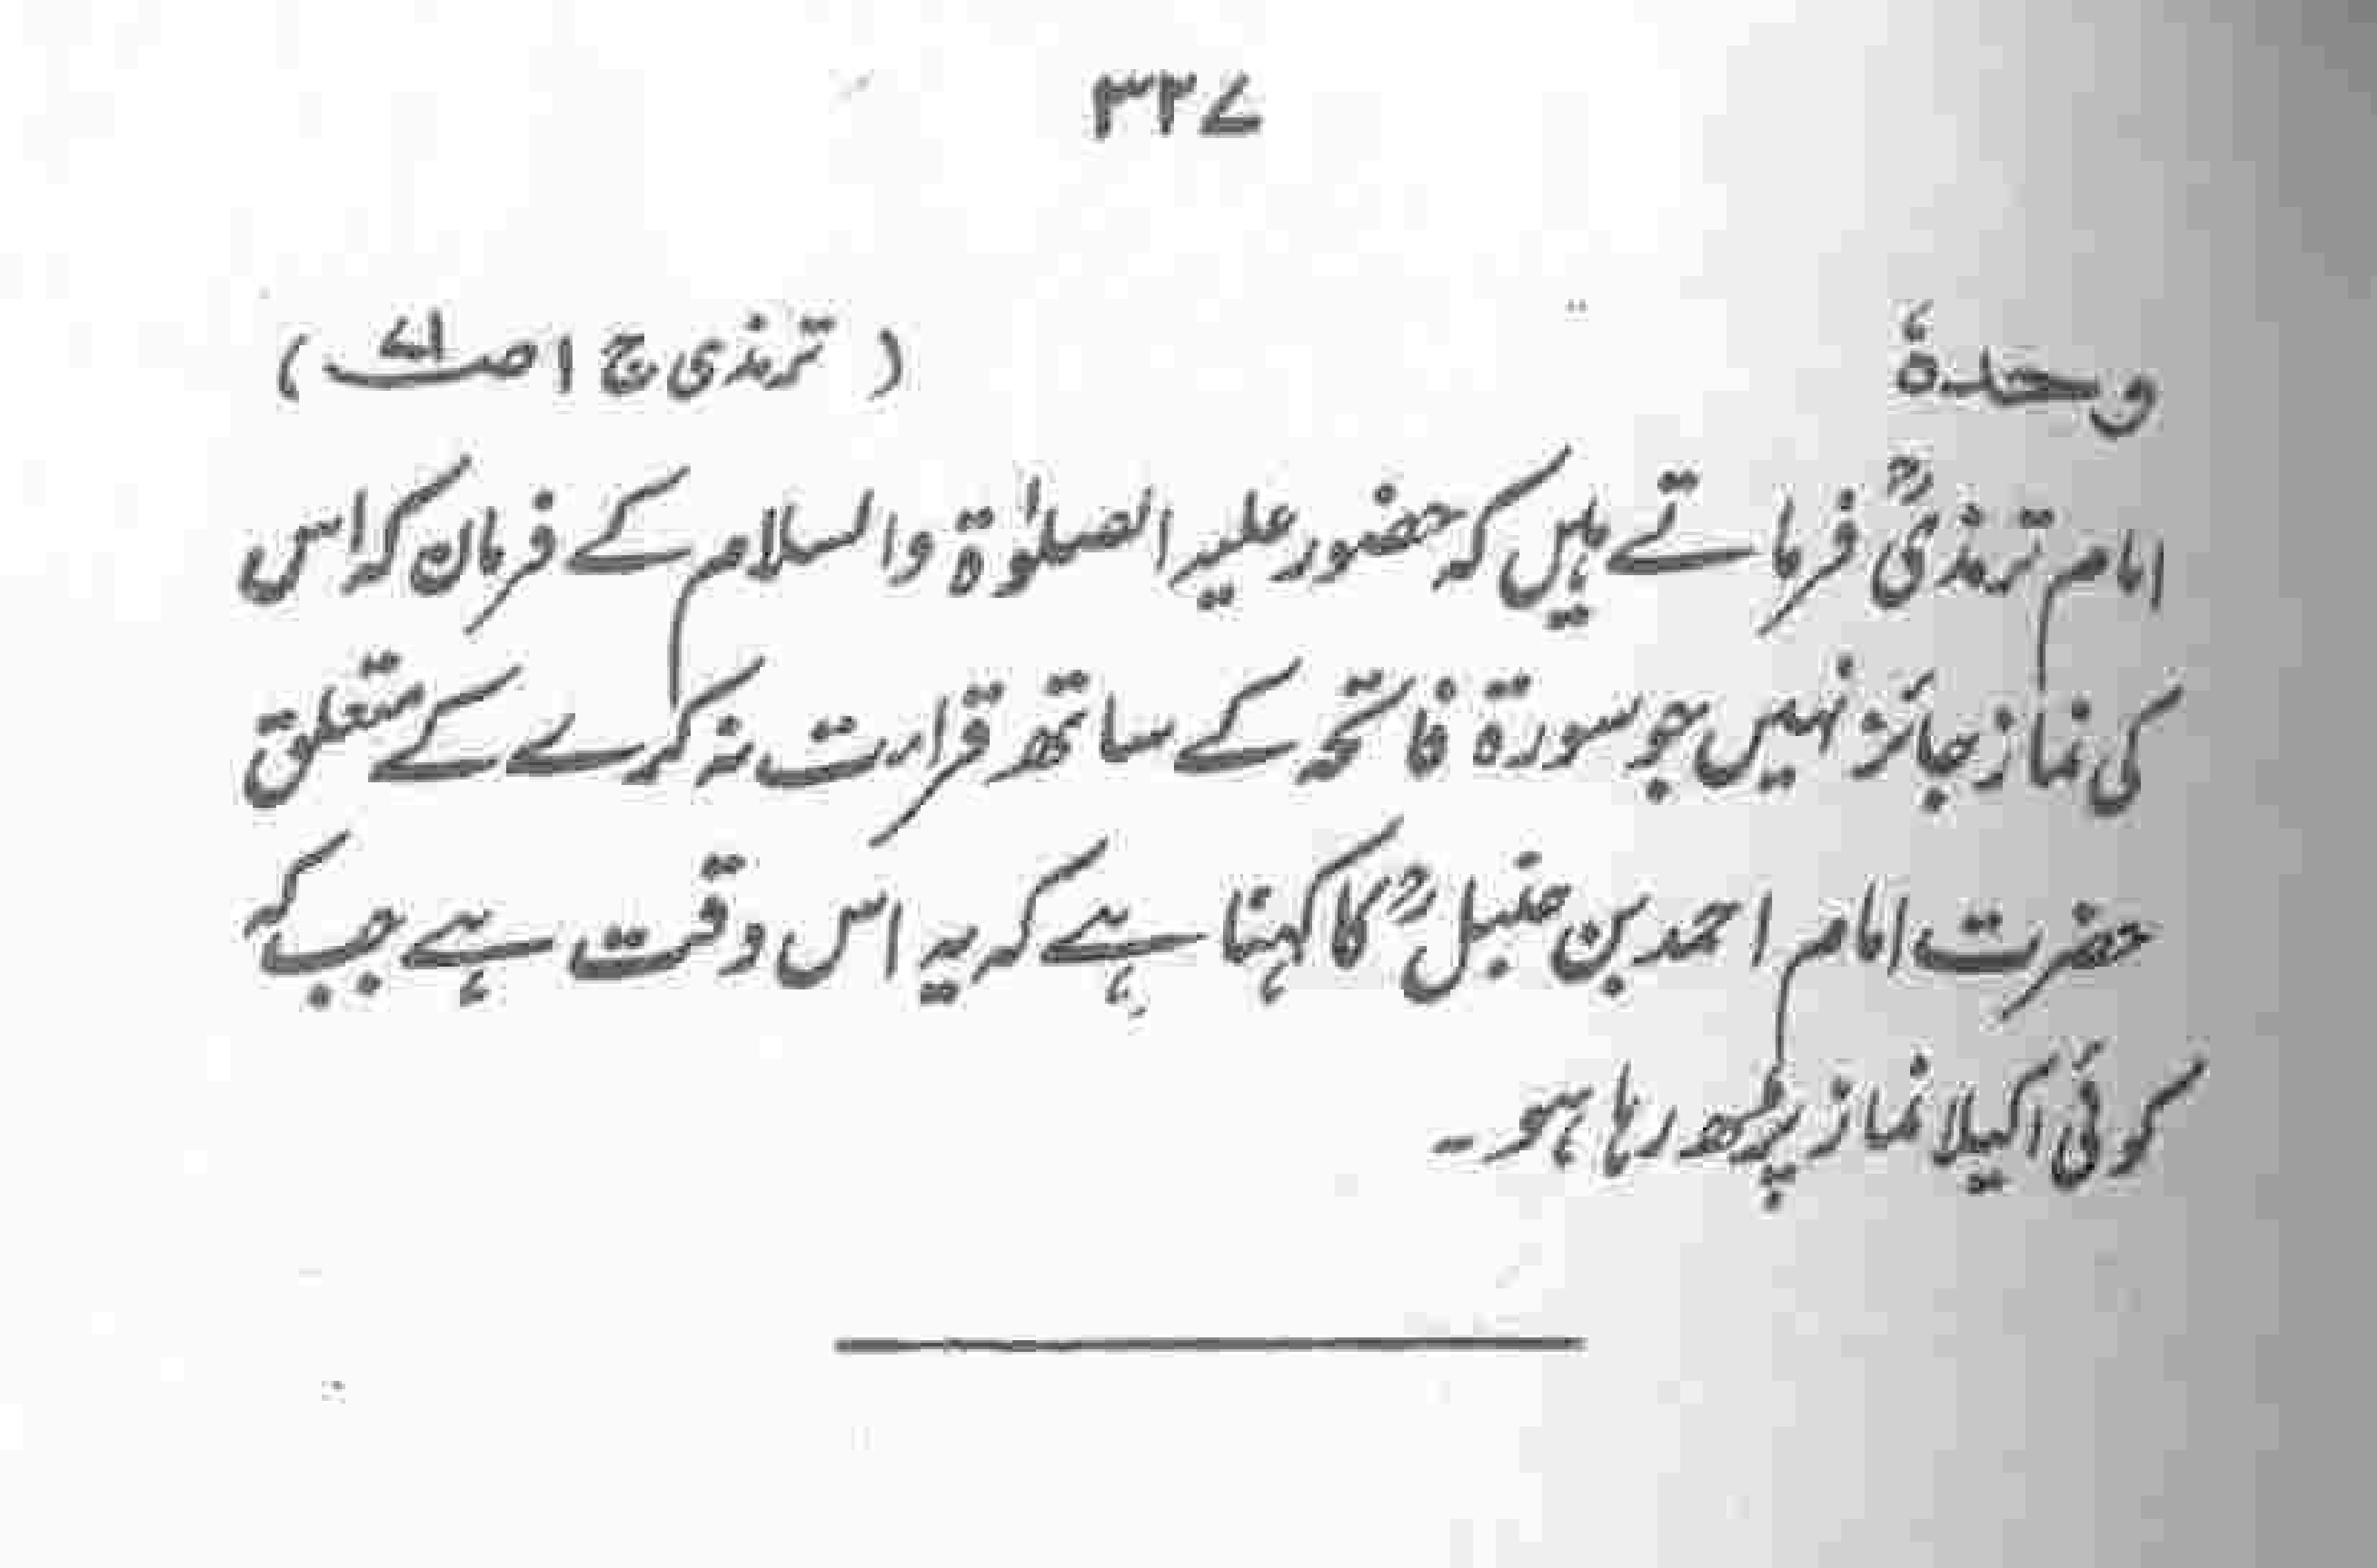 ۳۲۷
وحدہٗ (ترمذی ج ۱ صـ۷۱)
امام ترمذیؒ فرماتے ہیں کہ حضور علیہ الصلوٰۃ والسلام کے فرمان کہ اس
کی نماز جائز نہیں جو سورۃ فاتحہ کے ساتھ قرارت نہ کرے کے متعلق
حضرت امام احمد بن حنبلؒ کا کہنا ہے کہ یہ اس وقت ہے جب کہ
کوئی اکیلا نماز پڑھ رہا ہو۔